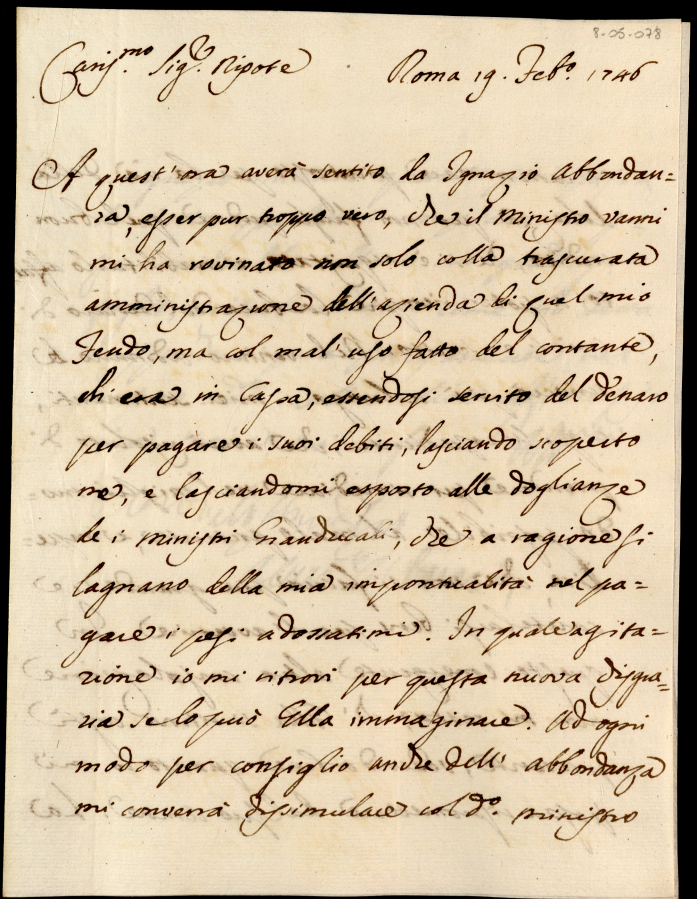 8-05-078
Caris.mo Sig.r Nipote Roma 19. Feb.o 1746
A quest'ora averà sentito da Ignazio Abbondan=
za, esser pur troppo vero, che il Ministro Vanni
mi ha rovinato non solo colla trascurata
amministrazione dell'azienda di quel mio
Feudo, ma col mal'uso fatto del contante,
ch'era in Cassa, essendosi servito del denaro
per pagare i suoi debiti, lasciando scoperto
me, e lasciandomi esposto alle doglianze
de i Ministri Granducali, che a ragione si
lagnano della mia impontualità nel pa=
gare i pesi adossatimi. In quale agita=
zione io mi ritrovi per questa nuova disgra=
zia se lo può Ella immaginare. Ad ogni
modo per consiglio anche dell'Abbondanza
mi converrà dissimulare col d.o Ministro